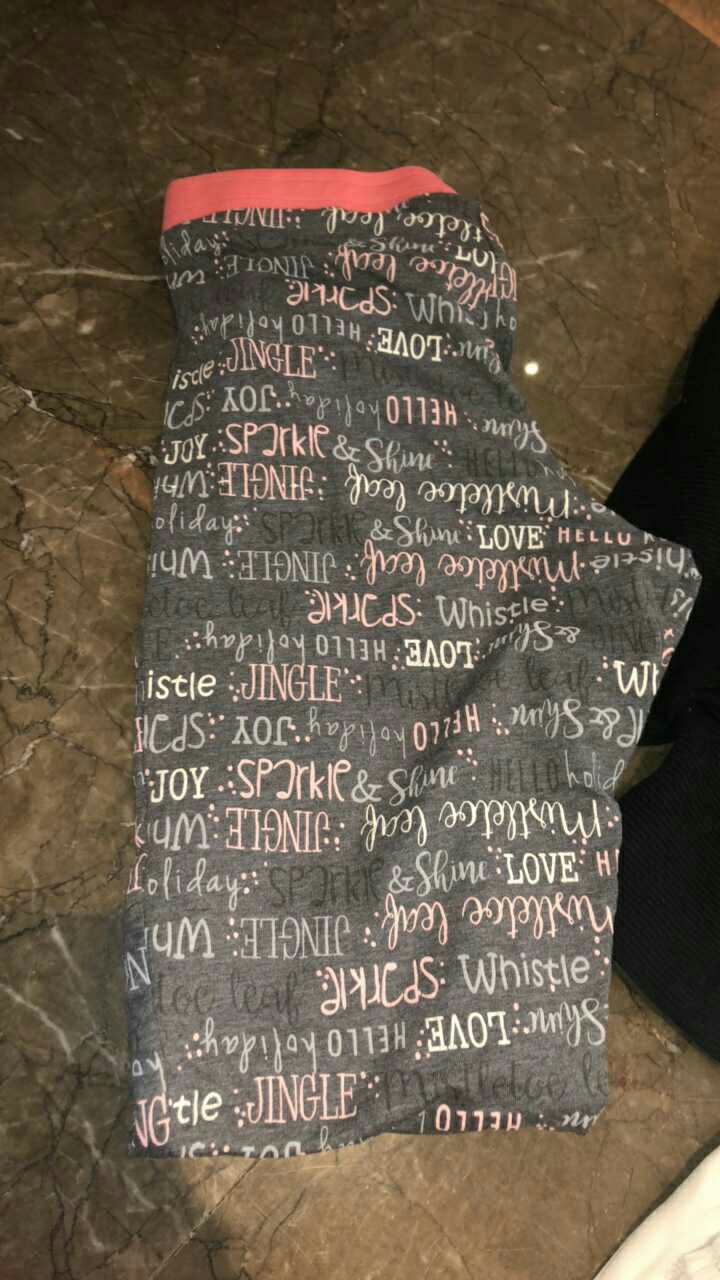 JINGLE Mistletoe leaf
oliday & Shine
JINGLE Mistletoe leaf
sparkle Whistle
HELLO holiday LOVE Shine
istle JINGLE Mistletoe le
JOY holiday HELLO Shine
JOY sparkle & Shine HELLO
Whi JINGLE Mistletoe leaf
oliday sparkle & Shine LOVE HELLO
Whi JINGLE Mistletoe leaf histle
toe leaf sparkle Whistle Mist
HELLO holiday LOVE & Shine
istle JINGLE Mistletoe leaf Wh
JOY holiday HELLO & Shine
JOY sparkle & Shine HELLO holid
Whi JINGLE Mistletoe leaf
oliday sparkle & Shine LOVE H
Whi JINGLE Mistletoe leaf
toe leaf sparkle Whistle
HELLO holiday LOVE Shine
tle JINGLE Mistletoe le
JOY HELLO